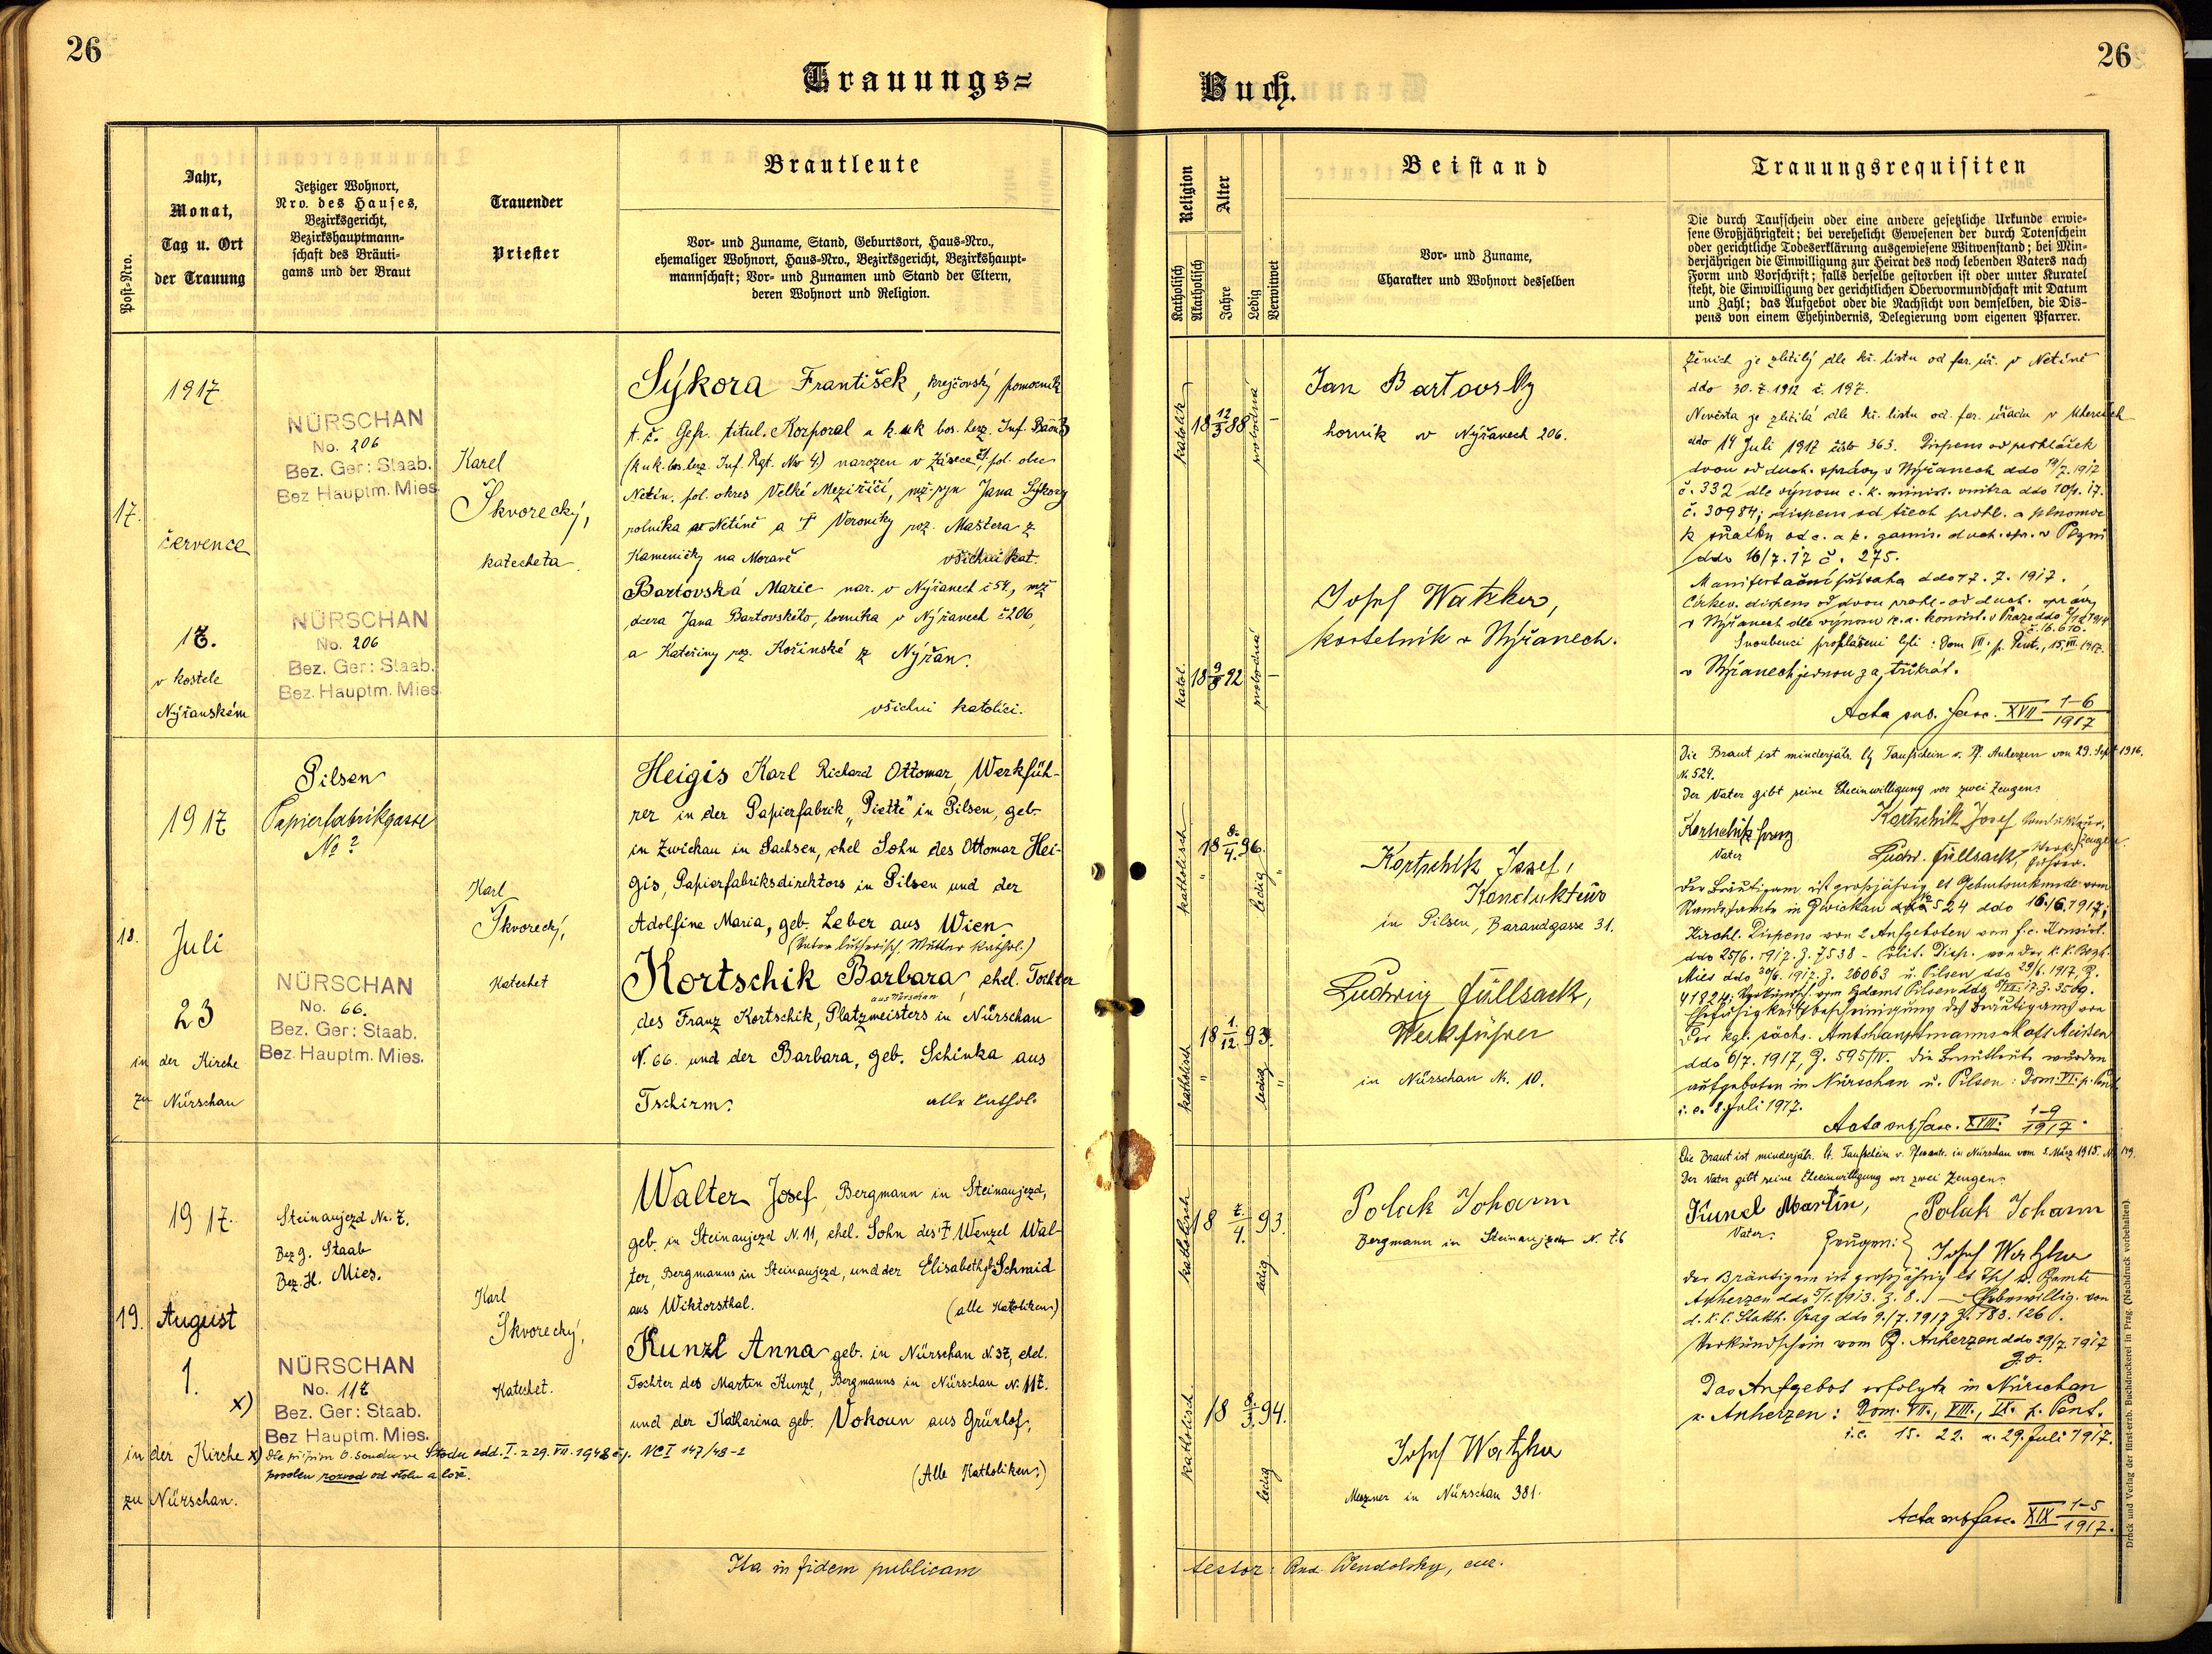 26
Trauungs=
Jahr,
Monat,
Tag u. Ort
der Trauung
Post-Nro.
Jetziger Wohnort,
Nro. des Hauses,
Bezirksgericht,
Bezirkshauptmann-
schaft des Bräuti-
gams und der Braut
Trauender
Priester
Brautleute
Vor- und Zuname, Stand, Geburtsort, Haus-Nro.,
ehemaliger Wohnort, Haus-Nro., Bezirksgericht, Bezirkshaupt-
mannschaft; Vor- und Zunamen und Stand der Eltern,
deren Wohnort und Religion.
17.
1917
července
17.
v kostele
Nýřanském
NÜRSCHAN
No. 206
Bez. Ger: Staab.
Bez Hauptm. Mies
NÜRSCHAN
No. 206
Bez. Ger: Staab.
Bez. Hauptm. Mies
Karel
Škvorecký,
katecheta.
Sýkora František, krejčovský pomocník
t. č. Gefr. titul. Korporal
narozen v
Netín, pol. okres Velké Meziříčí, Jana Sýkory
rolníka v Netíně a † Veroniky roz. Maštera z
Kameničky na Moravě všichni kat.
Bartovská Marie nar. v Nýřanech č 54, mž
dcera Jana Bartovského, horníka v Nýřanech č 206,
a Kateřiny roz. Kořínské z Nýřan.
všichni katolíci.
18.
1917
Juli
23
in der Kirche
zu Nürschan
Pilsen
Papierfabrikgasse
No ?
NÜRSCHAN
No. 66.
Bez. Ger: Staab.
Bez. Hauptm. Mies.
Karl
Škvorecý,
Katechet
Heigis Karl Richard Ottomar, Werkfüh-
rer in der Papierfabrik „Piette" in Pilsen, geb.
in Zwickau in Sachsen, ehel Sohn des Ottomar Hei-
gis, Papierfabriksdirektors in Pilsen und der
Adolfine Maria, geb. Leber aus Wien.
(Vater lutherisch, Mutter kathol.)
Kortschik Barbara, ehel. Tochter
aus Nürschan
des Franz Kortschik, Platzmeisters in Nürschan
N. 66. und der Barbara, geb. Schinka aus
Tschirm. alle kathol.
19.
1917.
August
1.
x)
in der Kirche
zu Nürschan.
Steinaujezd Nr. 7.
Bez g. Staab
Bez. H. Mies.
NÜRSCHAN
No. 117
Bez. Ger: Staab.
Bez Hauptm. Mies.
x) Dle přípisu o. soudu ve Stodu odd. I. z 29. VII. 1948 čj. NC I 147/48-2
povolen rozvod od stolu a lože.
Karl
Škvorecký,
Katechet.
Walter Josef, Bergmann in Steinaujezd,
geb. in Steinaujezd N. 11, ehel. Sohn des † Wenzel Wal-
ter, Bergmanns in Steinaujezd, und der Elisabeth geb. Schmid
aus Wiktorsthal. (alle Katoliken)
Kunzl Anna geb. in Nürschan N. 37, ehel.
Tochter des Martin Kunzl, Bergmanns in Nürschan N. 117.
und der Katharina geb. Vokoun aus Grünhof.
(Alle Katholiken)
Ita in fidem publicam
26
Buch.
Religion
Katholisch
Akatholisch
Alter
Jahre
Ledig
Verwitwet
Beistand
Vor- und Zuname,
Charakter und Wohnort desselben
Trauungsrequisiten
Die durch Taufschein oder eine andere gesetzliche Urkunde erwie-
sene Großjährigkeit; bei verehelicht Gewesenen der durch Totenschein
oder gerichtliche Todeserklärung ausgewiesene Witwenstand; bei Min-
derjährigen die Einwilligung zur Heirat des noch lebenden Vaters nach
Form und Vorschrift; falls derselbe gestorben ist oder unter Kuratel
steht, die Einwilligung der gerichtlichen Obervormundschaft mit Datum
und Zahl; das Aufgebot oder die Nachsicht von demselben, die Dis-
pens von einem Ehehindernis, Delegierung vom eigenen Pfarrer.
katolík
18 12/3 88
svobodná
Jan Bartovský
horník v Nýřanech 206.
katol.
18 9/8 92
svobodná
Josef Watzka,
kostelník v Nýřanech.
Ženich je zletilý dle kř. listu od far. úř. v Netíně
ddo 30. 7. 1912 č. 197.
Nevěsta je zletilá dle kř. listu od far. úřadu v
ddo 14 Juli 1917 číslo 363. Dispens od prohlášek
dvou od duch. správy v Nýřanech ddo 14/7. 1917
č. 332 dle výnosu c. k. minist. vnitra ddo
č. 30984; dispens od třech prohl. a plnomoc
k sňatku od c. a k. garnis. duch. spr. v Plzni
ddo 16/7. 17 č. 275.
Manifestační přísaha ddo 17. 7. 1917.
Církev. dispens od dvou prohl. od duch. správy
Snoubenci prohlášeni byli: Dom VII. p. Pent., 15. VII. 1917.
v Nýřanech jednou za třikrát.
Acta sub. fasc. XVII 1-6/1917
katholisch
18 8./4. 96.
ledig
Kortschik Josef,
Kondukteur
in Pilsen, Barandgasse 31.
katholisch
18 1./12. 93.
ledig
Ludwig Füllsack,
Werkführer
in Nürschan Nr. 10.
Die Braut ist minderjähr. lt Taufschein v. Pf. Auherzen von 29. Sept 1916.
N. 524.
Der Vater gibt seine Eheeinwilligung vor zwei Zeugen.
Kortschik Franz
Vater
Kortschik Josef Kondukteur,
Ludw. Füllsack, Werkführer.
Zeugen
Der Bräutigam ist großjährig lt Geburtsurkunde vom
Standesamte in Zwickau No 524 ddo 16./6. 1917;
Kirchl. Dispens von 2 Aufgeboten vom f. e. Konsist.
ddo 25/6. 1917. Z. 7538 - Polit. Disp. von der k. k. Bezh.
Mies ddo 30/6. 1917. Z. 26063 u. Pilsen ddo 29/6. 1917, Z.
Ehefähigkeitsbescheinigung des Bräutigams von
der kgl. sächs. Amtshauptmannschaft Meißen
ddo 6/7. 1917, Z. 595/IV. Die Brautleute wurden
aufgeboten in Nürschan u. Pilsen: Dom. VI. p. Pent
i. e. 8. Juli 1917.
Acta sub fasc. XVIII. 1-9/1917.
katholisch
18 7./4. 93.
ledig
Polak Johann
Bergmann in Steinaujezd N. 76
katholisch
18 8./3. 94.
ledig
Josef Watzka
Meszner in Nürschan 381.
Die Braut ist minderjähr. lt. Taufschein v. Pfarramte. in Nürschan vom 5. März 1915. N. 149.
Der Vater gibt seine Eheeinwilligung vor zwei Zeugen.
Kunzl Martin,
Vater.
Zeugen: { Polak Johann
Josef Watzka
Der Bräutigam ist großjährig lt Tfsch v. Pfamte
Auherzen ddo 5/1. 1913. Z. 8. — Ehebewillig. von
d. k. k. Statth. Prag ddo 9./7. 1917 Z. 183.126.
Verkündschein vom Pf. Auherzen ddo 29/7. 1917
Das Aufgebot erfolgte in Nürschan
u. Auherzen: Dom. VII., VIII., IX. p. Pent.
i. e. 15. 22. u. 29. Juli 1917.
Acta sub fasc. XIX 1-5/1917.
testor: Rud. Wendolsky,
Druck und Verlag der fürst-erzb. Buchdruckerei in Prag. (Nachdruck vorbehalten).